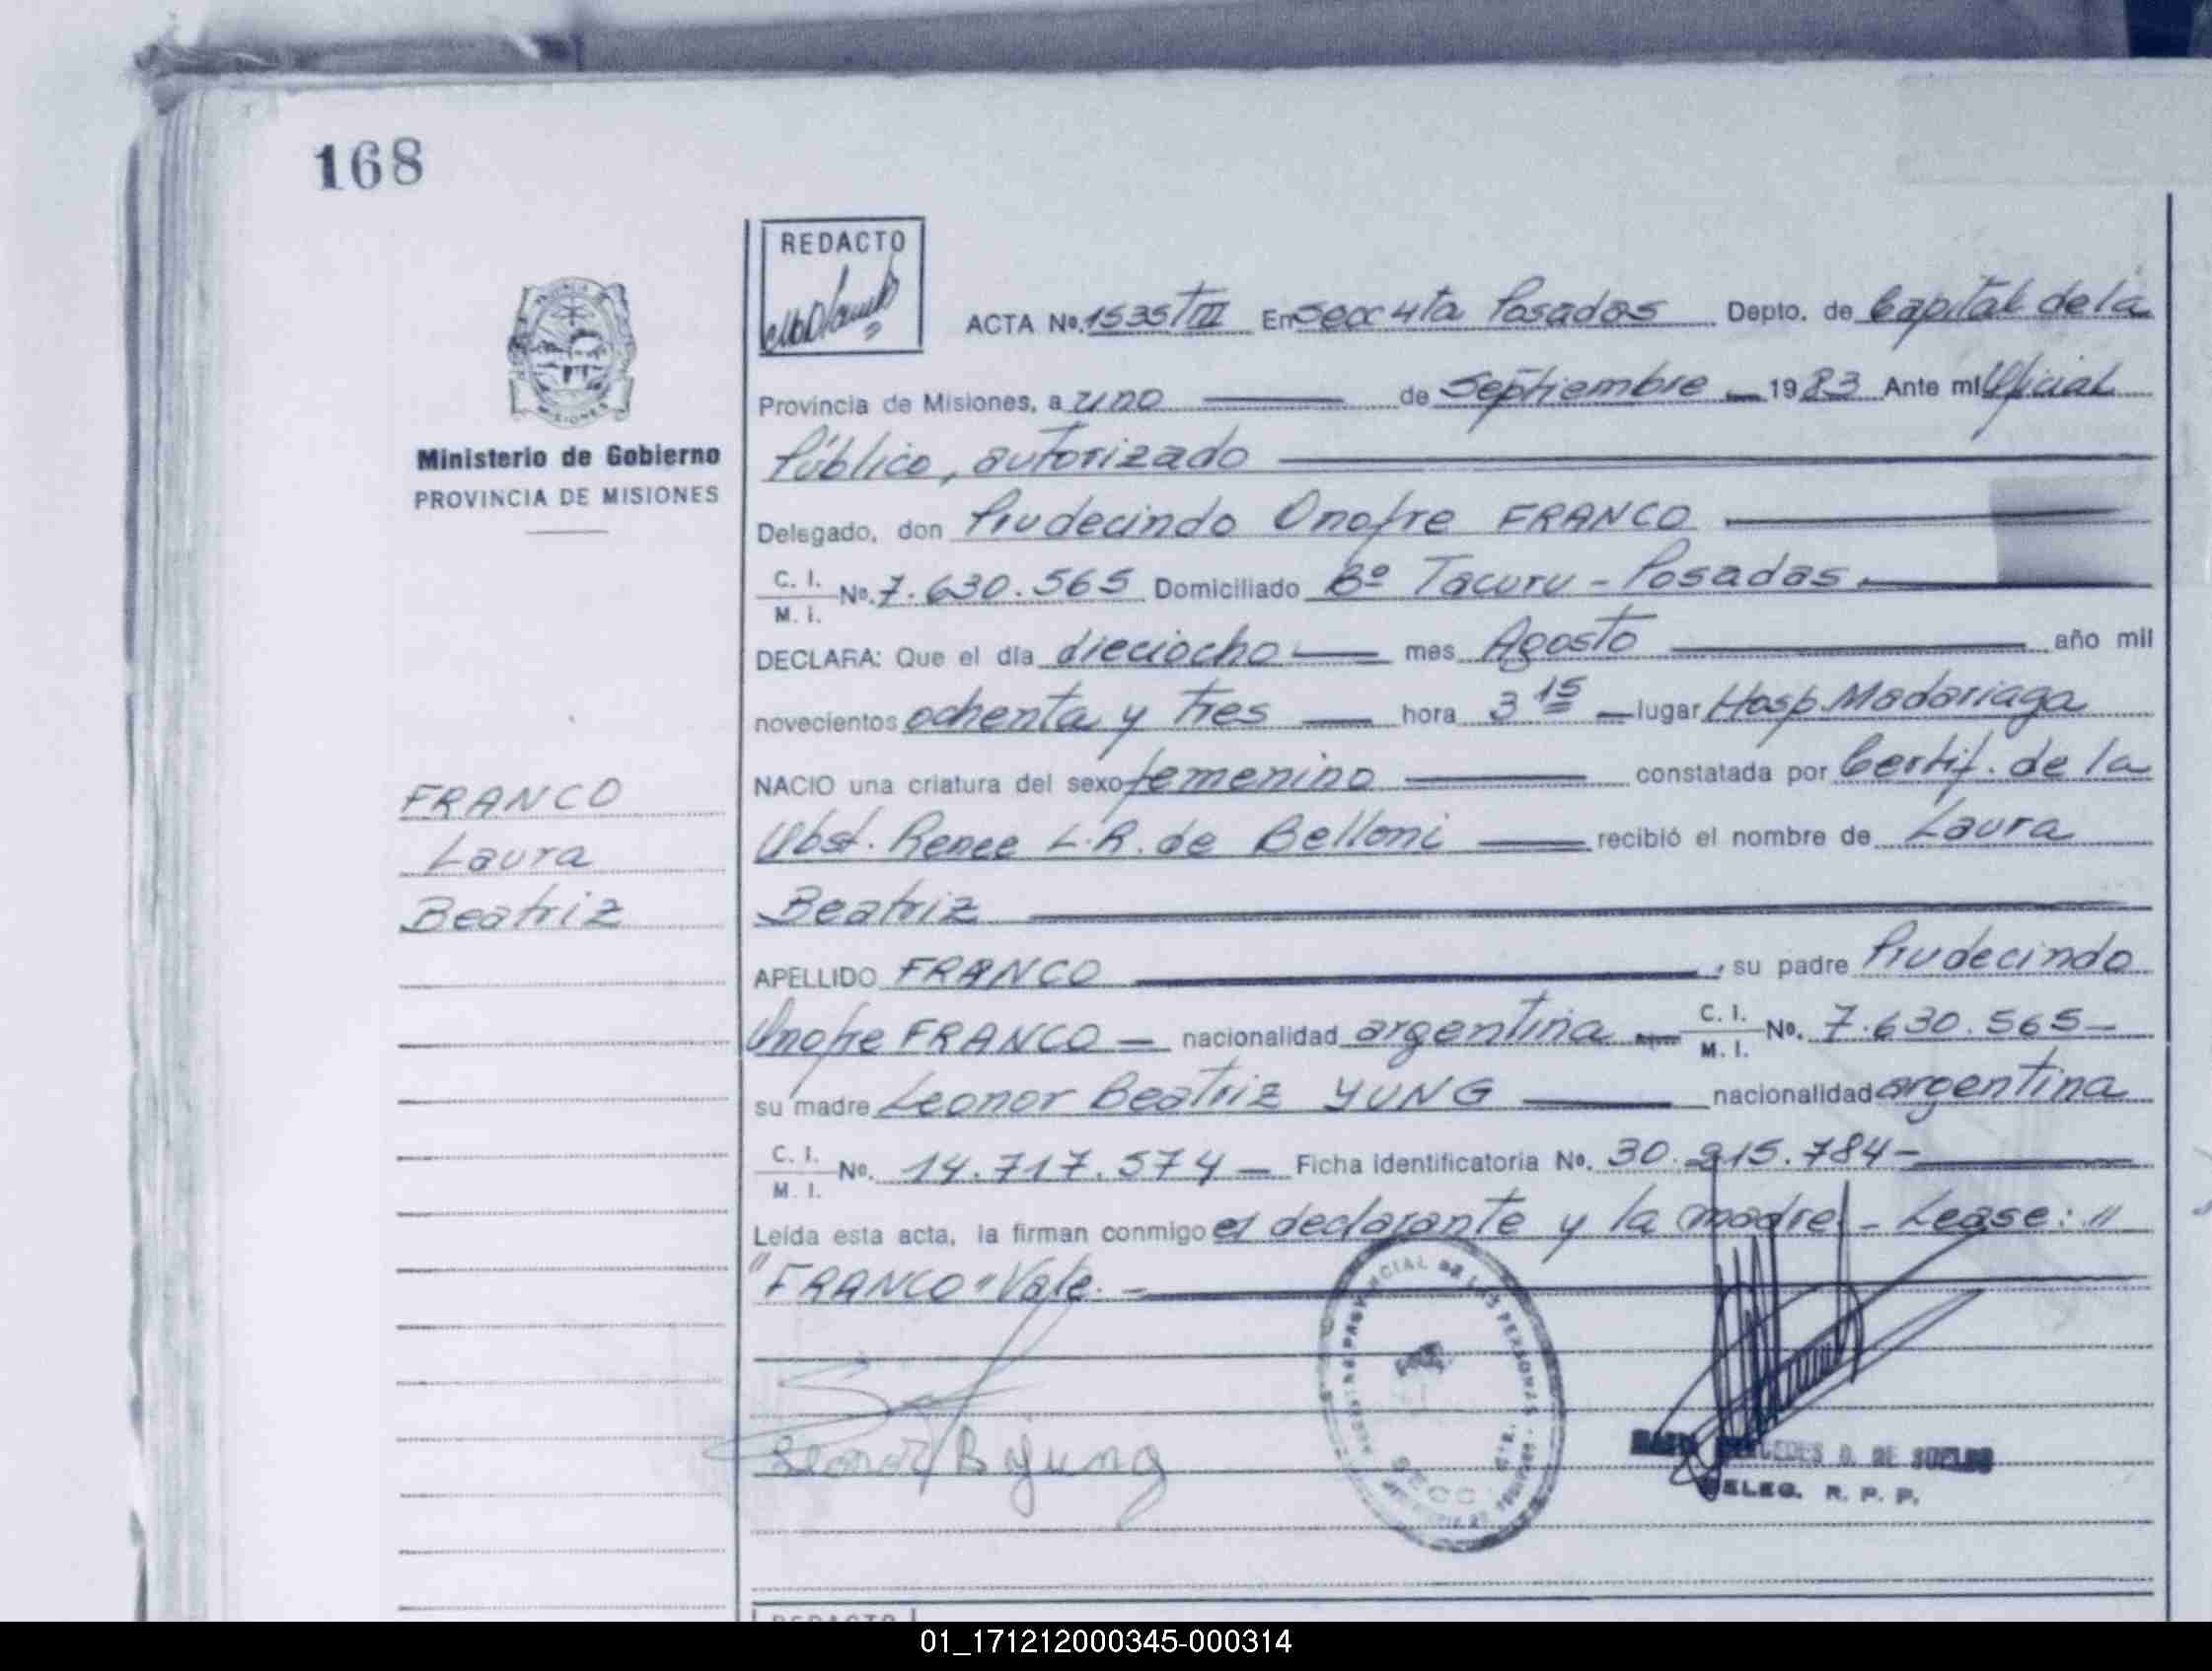 168
REDACTO
ACTA No. 1535 TIII En Secc 4ta Posadas Depto. de Capital de la
Provincia de Misiones, a uno de Septiembre 1983 Ante mi Oficial
Público, autorizado
Delegado, don Prudecindo Onofre FRANCO
C. I. / M. I. No. 7.630.565 Domiciliado Bº Tacuru - Posadas.
DECLARA: Que el día dieciocho mes Agosto año mil
novecientos ochenta y tres hora 3 15 lugar Hosp. Madariaga
NACIO una criatura del sexo femenino constatada por Certif. de la
Obst. Renee L.R. de Belloni recibió el nombre de Laura
Beatriz
APELLIDO FRANCO, su padre Prudecindo
Onofre FRANCO — nacionalidad argentina C. I. / M. I. No. 7.630.565-
su madre Leonor Beatriz YUNG nacionalidad argentina
C. I. / M. I. No. 14.717.574 — Ficha identificatoria No. 30.215.784-
Leída esta acta, la firman conmigo el declarante y la madre - Lease: "
"FRANCO" Vale. -
Leonor B Yung
DE SUELDO
DELEG. R. P. P.
Ministerio de Gobierno
PROVINCIA DE MISIONES
FRANCO
Laura
Beatriz
REDACTO
01_171212000345-000314